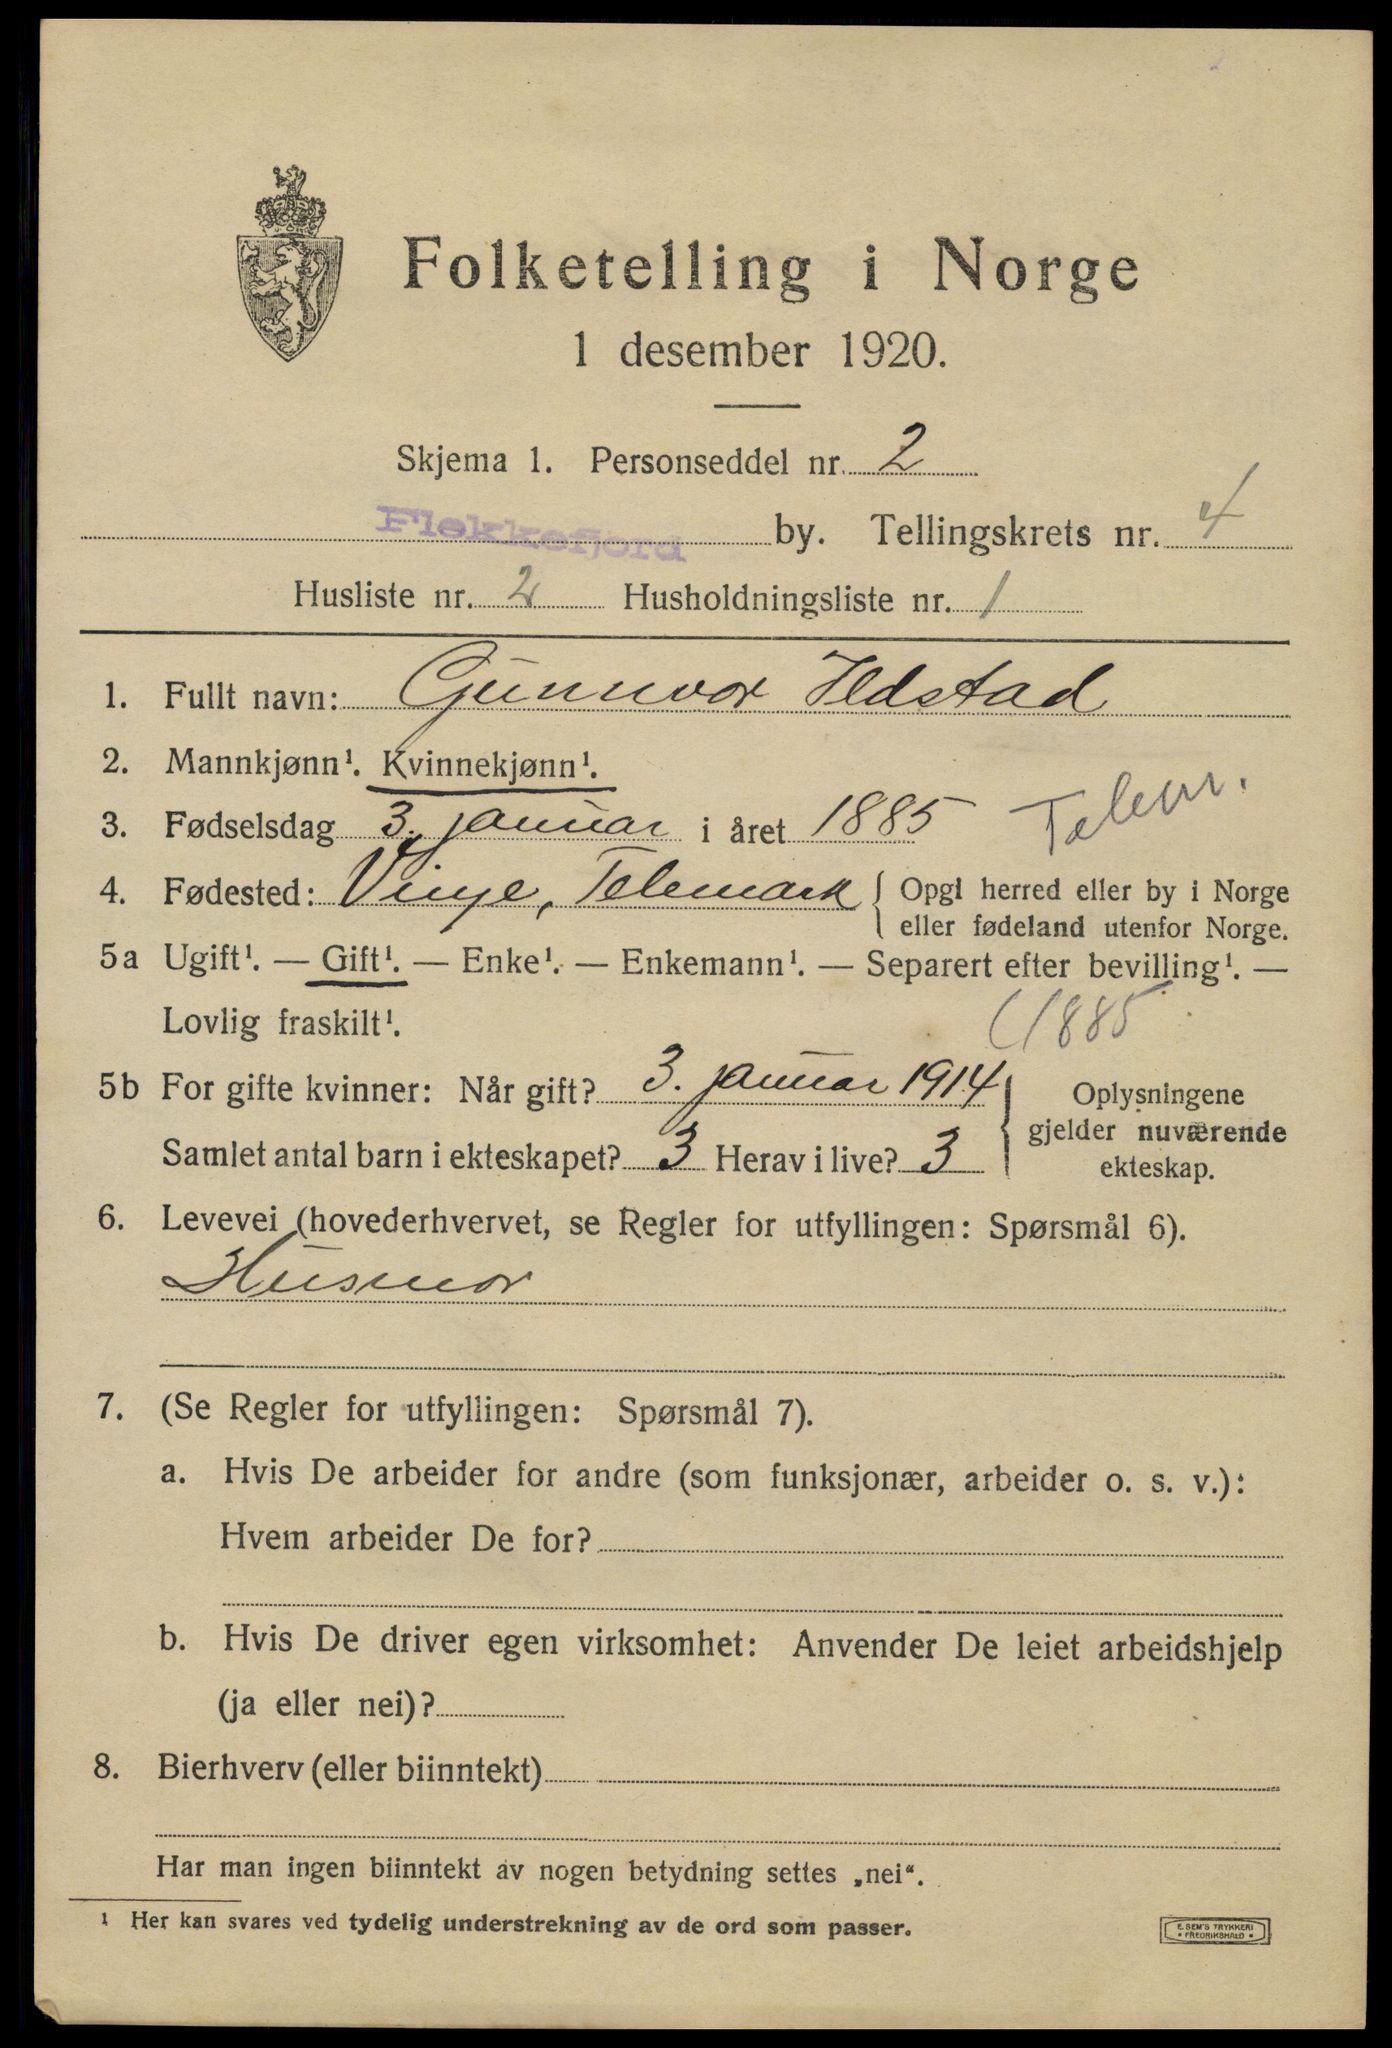 Folketelling i Norge
1 desember 1920.
Skjema 1. Personseddel nr. 2
Flekkefjord by. Tellingskrets nr. 4
Husliste nr. 2 Husholdningsliste nr. 1
1. Fullt navn: Gunnvor Ildstad
2. Mannkjønn¹. Kvinnekjønn¹.
3. Fødselsdag 3. januar i året 1885 Telem.
4. Fødested: Vinje, Telemark { Opgi herred eller by i Norge
eller fødeland utenfor Norge.
5a Ugift¹. — Gift¹. — Enke¹. — Enkemann¹. — Separert efter bevilling¹. —
Lovlig fraskilt¹. (1885
5b For gifte kvinner: Når gift? 3. januar 1914 } Oplysningene
gjelder nuværende
Samlet antal barn i ekteskapet? 3 Herav i live? 3 ekteskap.
6. Levevei (hovederhvervet, se Regler for utfyllingen: Spørsmål 6).
Husmor
7. (Se Regler for utfyllingen: Spørsmål 7).
a. Hvis De arbeider for andre (som funksjonær, arbeider o. s. v.):
Hvem arbeider De for?
b. Hvis De driver egen virksomhet: Anvender De leiet arbeidshjelp
(ja eller nei)?
8. Bierhverv (eller biinntekt)
Har man ingen biinntekt av nogen betydning settes „nei“.
¹ Her kan svares ved tydelig understrekning av de ord som passer.
E. SEM'S TRYKKERI
• FREDRIKSHALD •